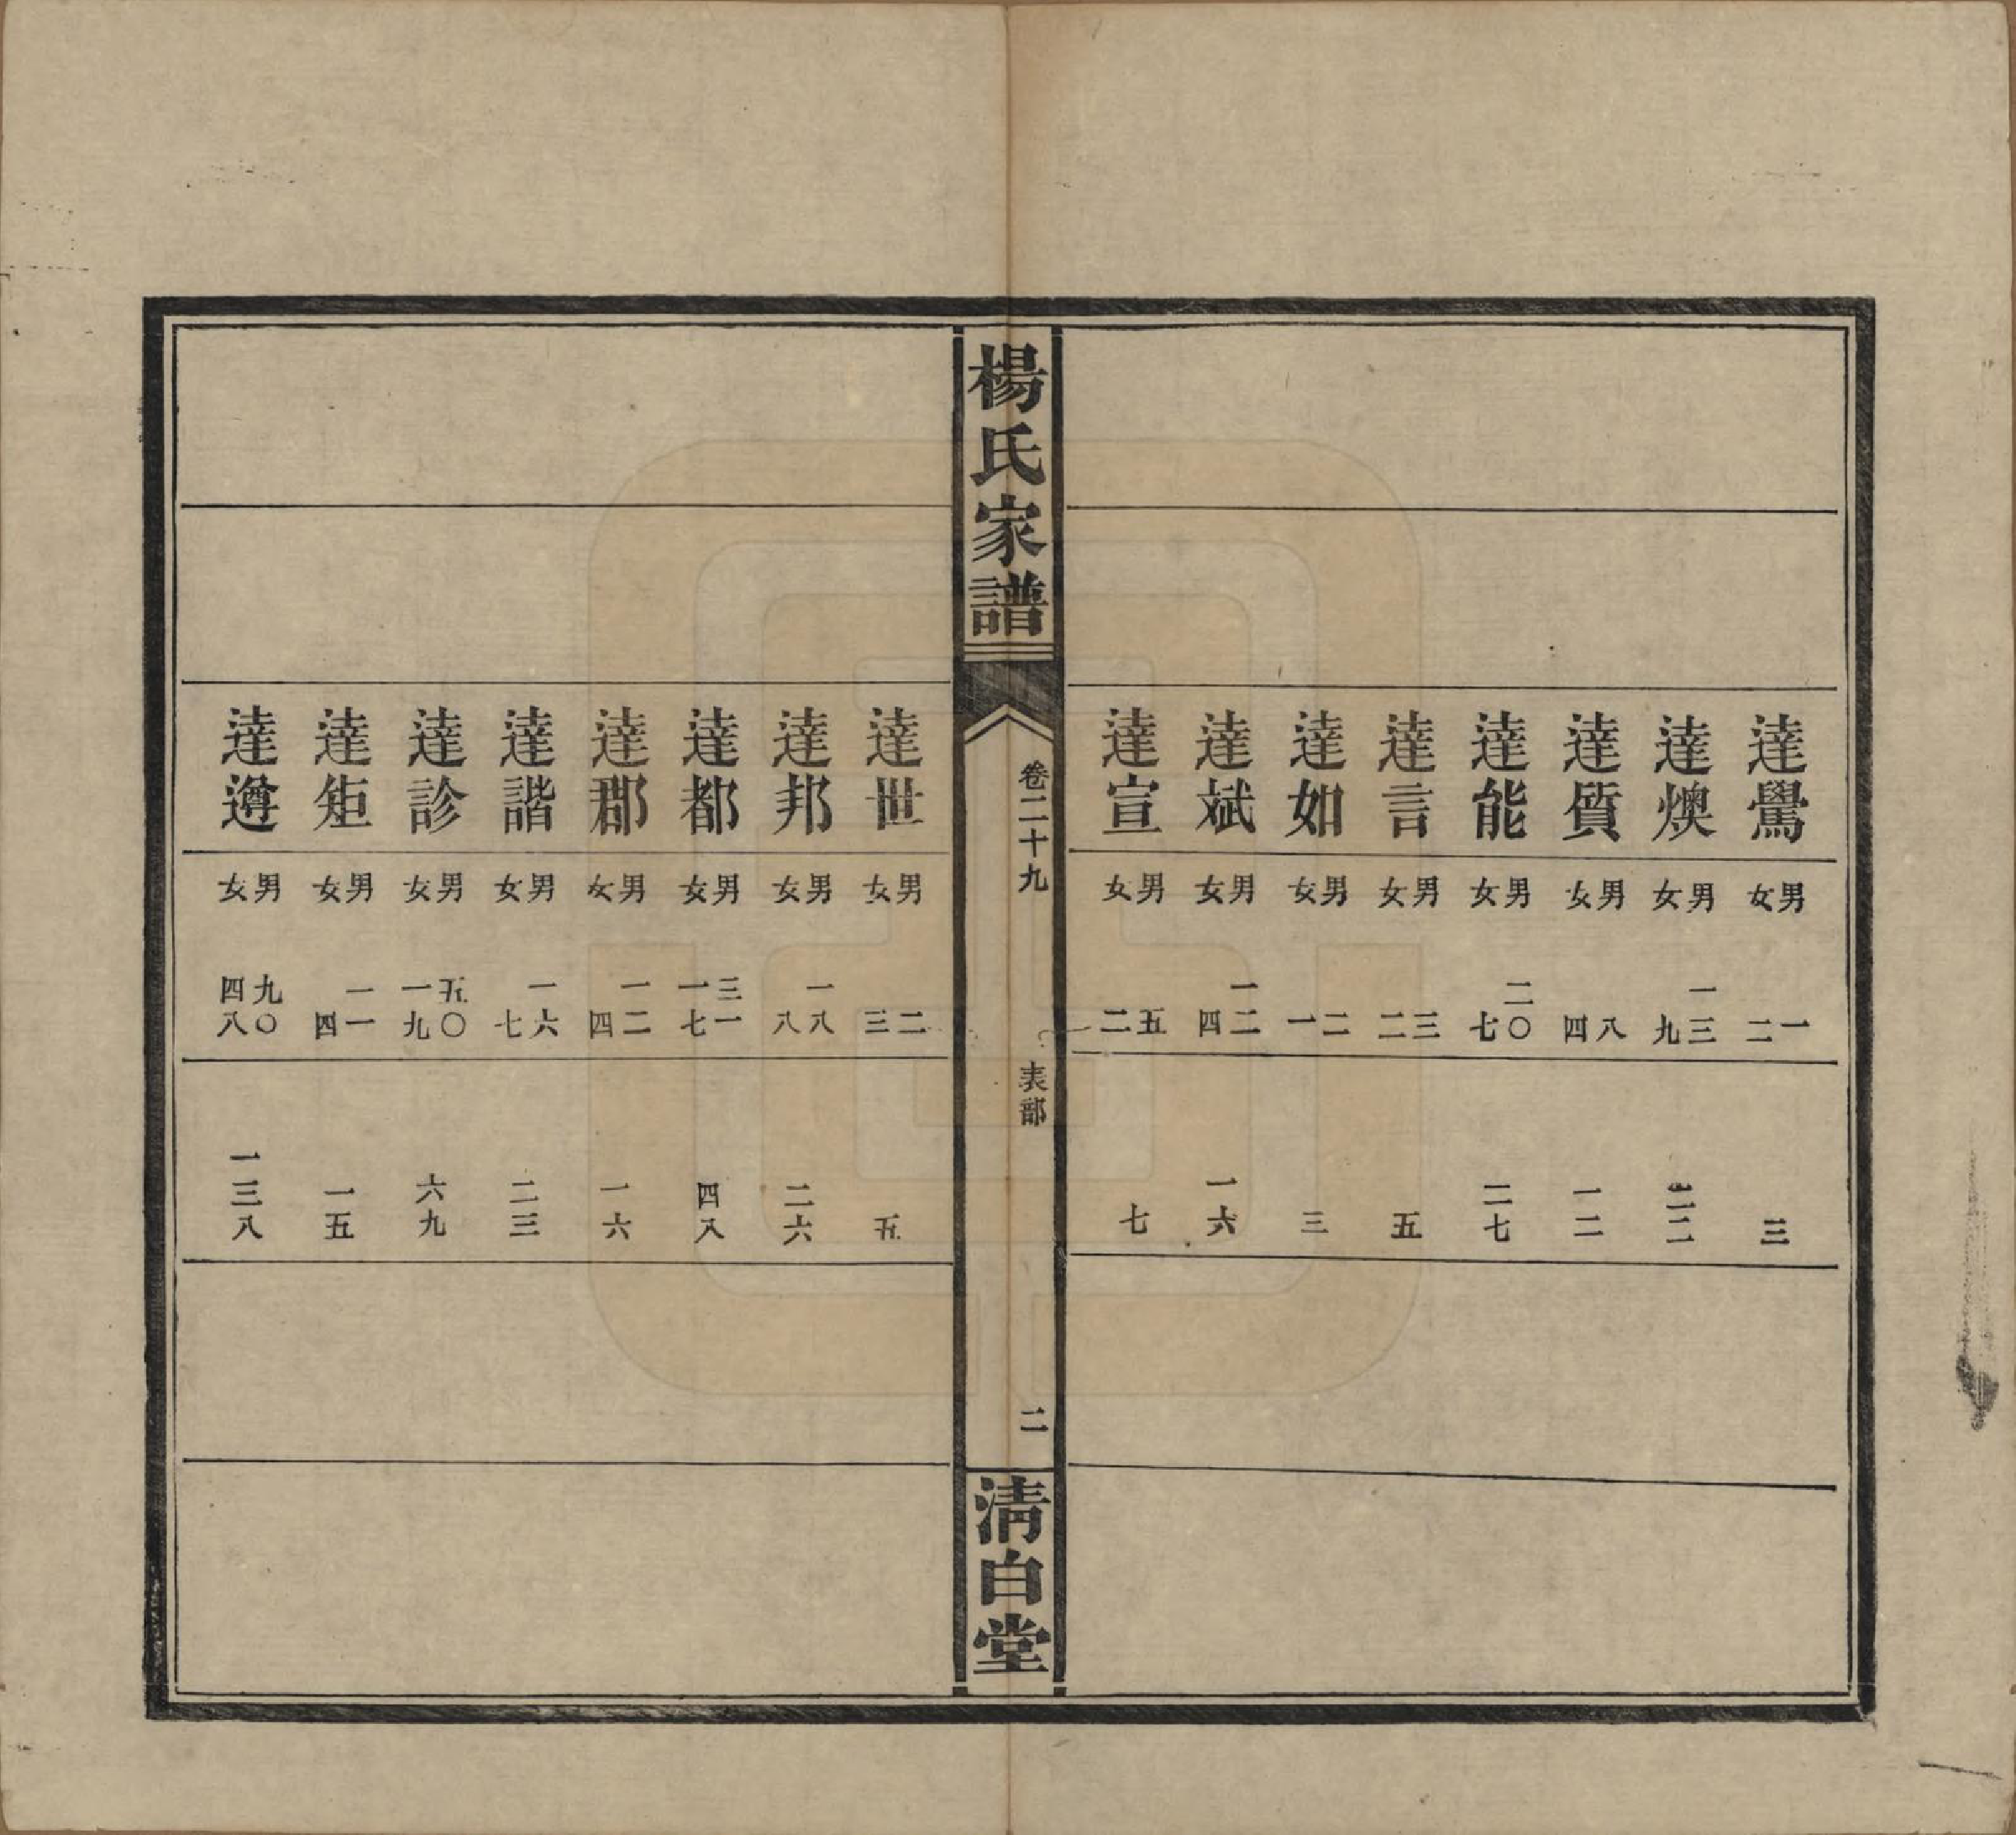 達鷽 男 一 女 二 三
達燠 男 一三 女 九 二二
達貭 男 八 女 四 一二
達能 男 二〇 女 七 二七
達言 男 三 女 二 五
達如 男 二 女 一 三
達斌 男 一二 女 四 一六
達宣 男 五 女 二 七
楊氏家譜
卷二十九 表部 二
淸白堂
達世 男 二 女 三 五
達邦 男 一八 女 八 二六
達都 男 三一 女 一七 四八
達郡 男 一二 女 四 一六
達諧 男 一六 女 七 二三
達診 男 五〇 女 一九 六九
達矩 男 一一 女 四 一五
達遵 男 九〇 女 四八 一三八